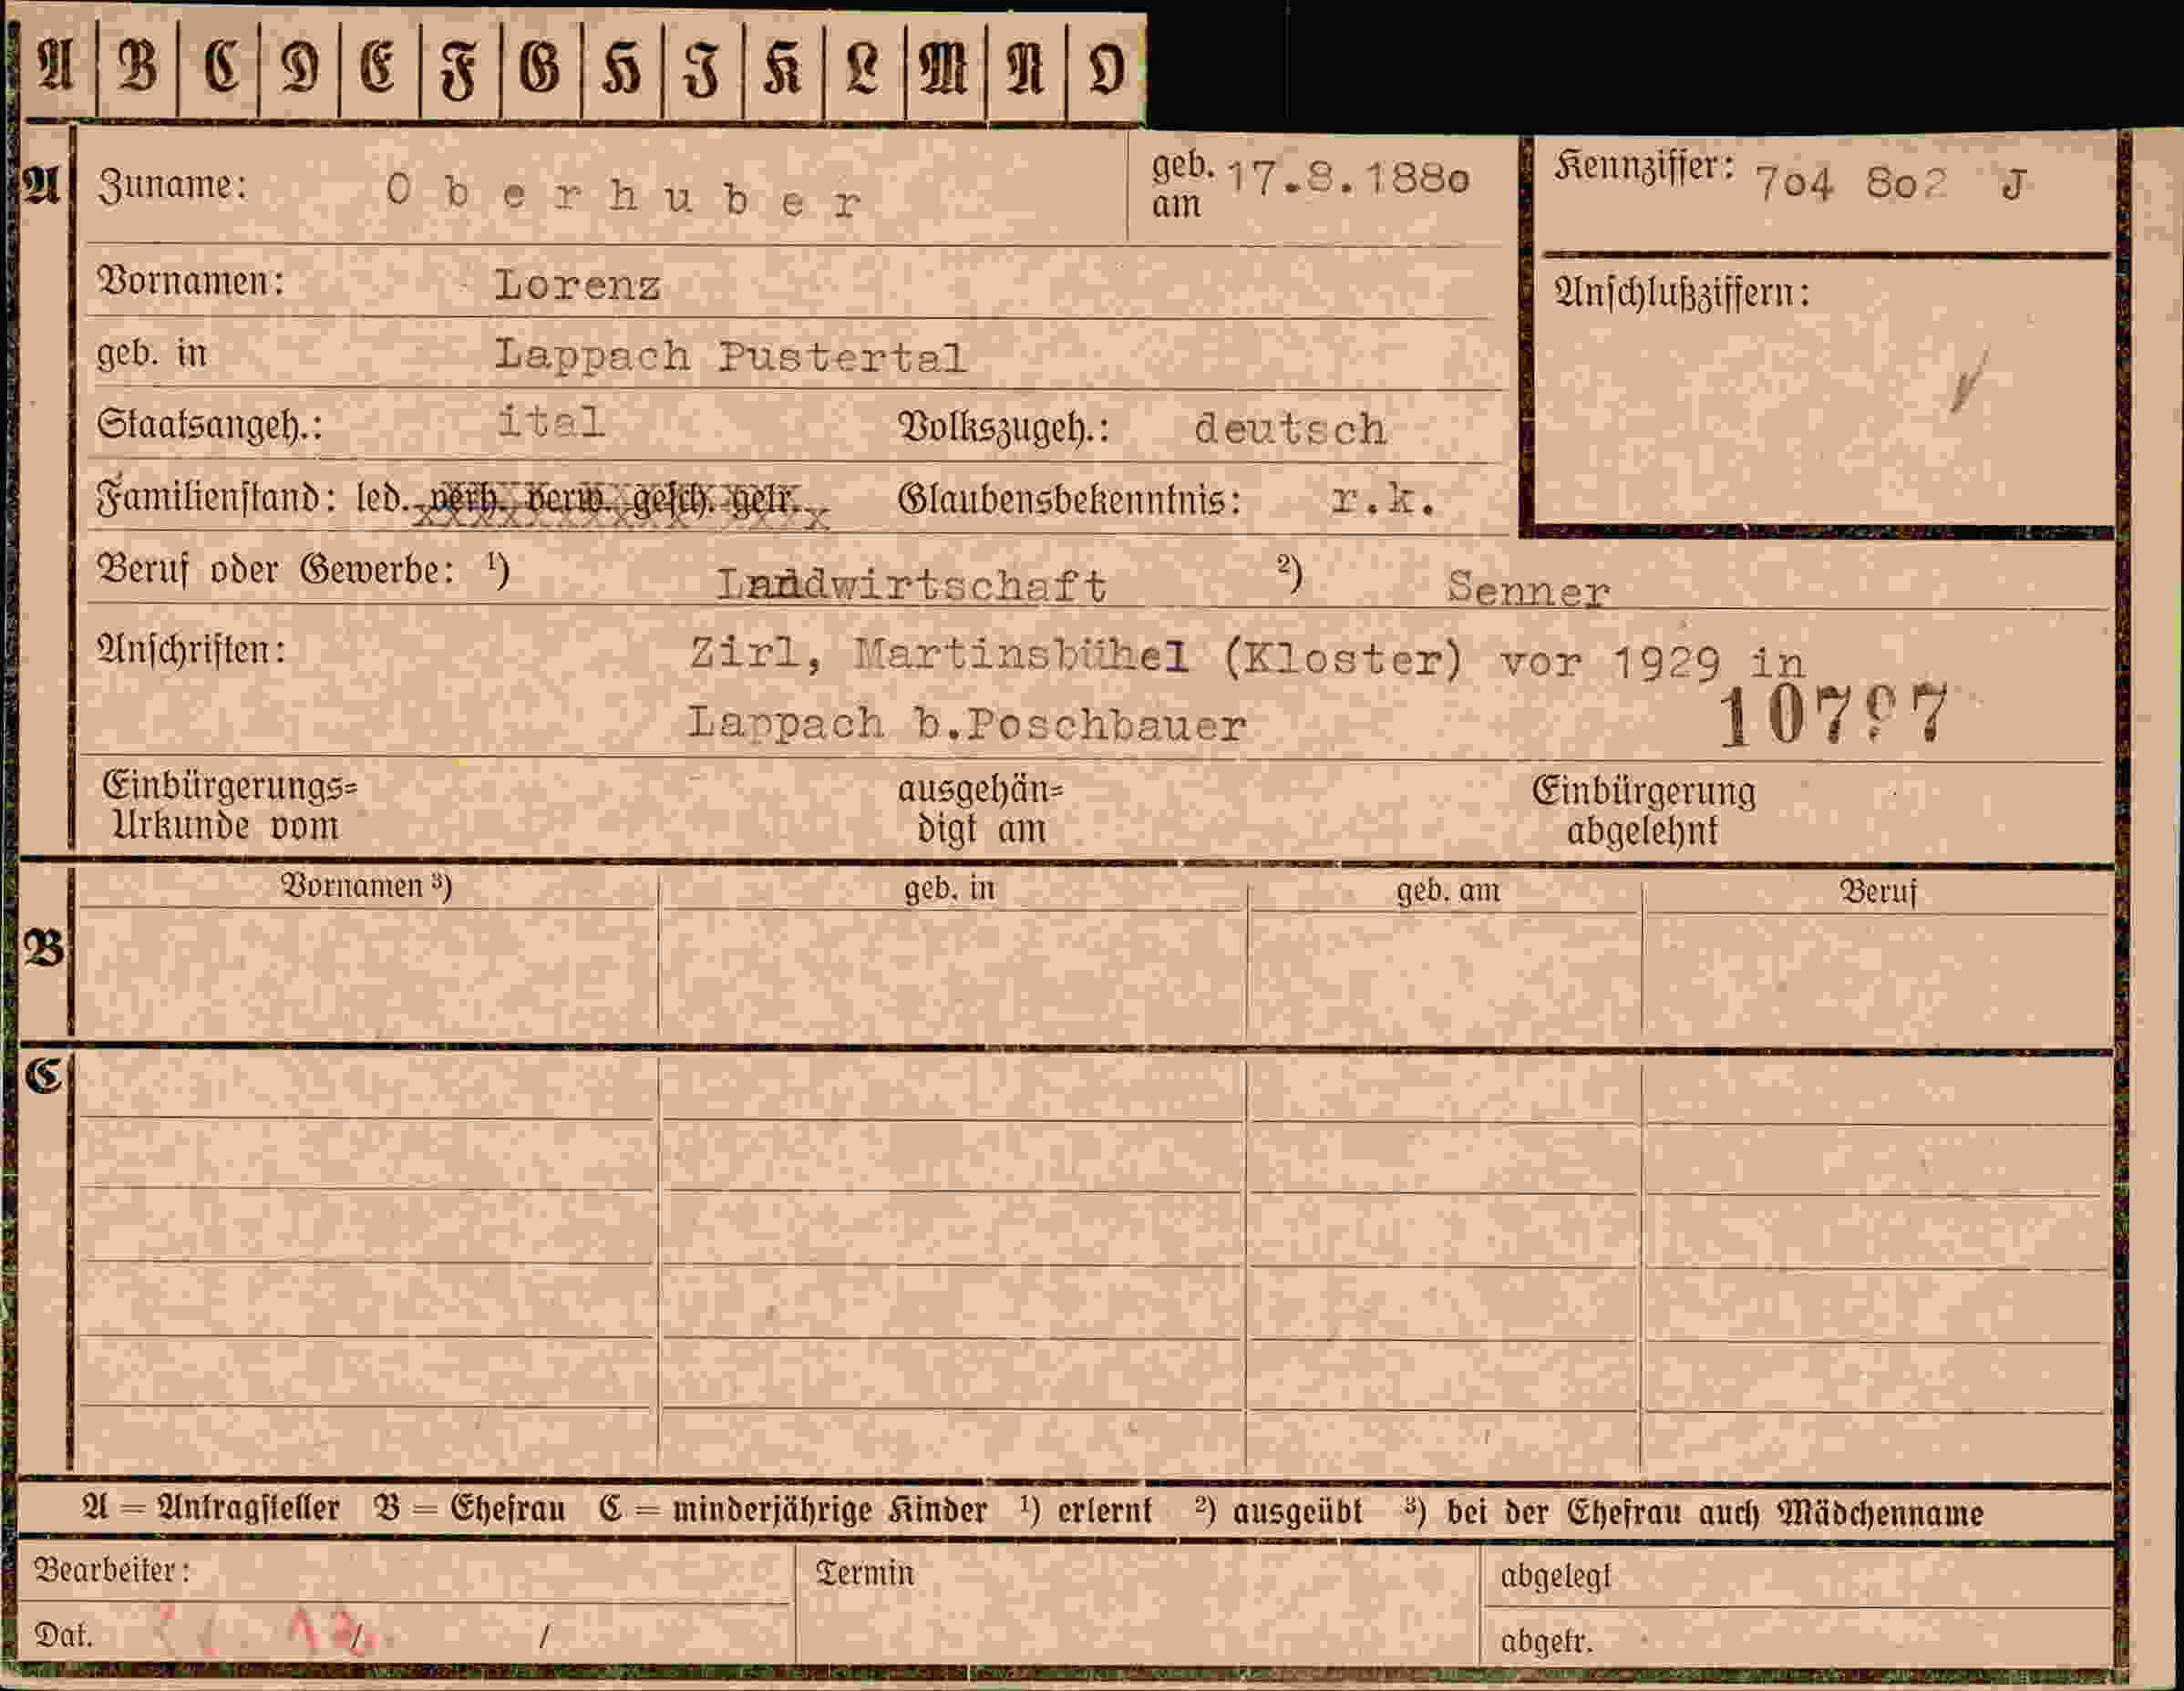 A B C D E F G H J K L M N O
A Zuname: Oberhuber geb. am 17.8.1880 Kennziffer: 704 802 J
Vornamen: Lorenz Anschlußziffern:
geb. in Lappach Pustertal
Staatsangeh.: ital Volkszugeh.: deutsch
Familienstand: led. verh. verw. gesch. getr. Glaubensbekenntnis: r.k.
Beruf oder Gewerbe: ¹) Landwirtschaft ²) Senner
Anschriften: Zirl, Martinsbühel (Kloster) vor 1929 in
Lappach b.Poschbauer
Einbürgerungs= ausgehän= Einbürgerung
Urkunde vom digt am abgelehnt
Vornamen ³) geb. in geb. am Beruf
B
C
A = Antragsteller B = Ehefrau C = minderjährige Kinder ¹) erlernt ²) ausgeübt ³) bei der Ehefrau auch Mädchenname
Bearbeiter: Termin abgelegt
Dat. / / abgetr.